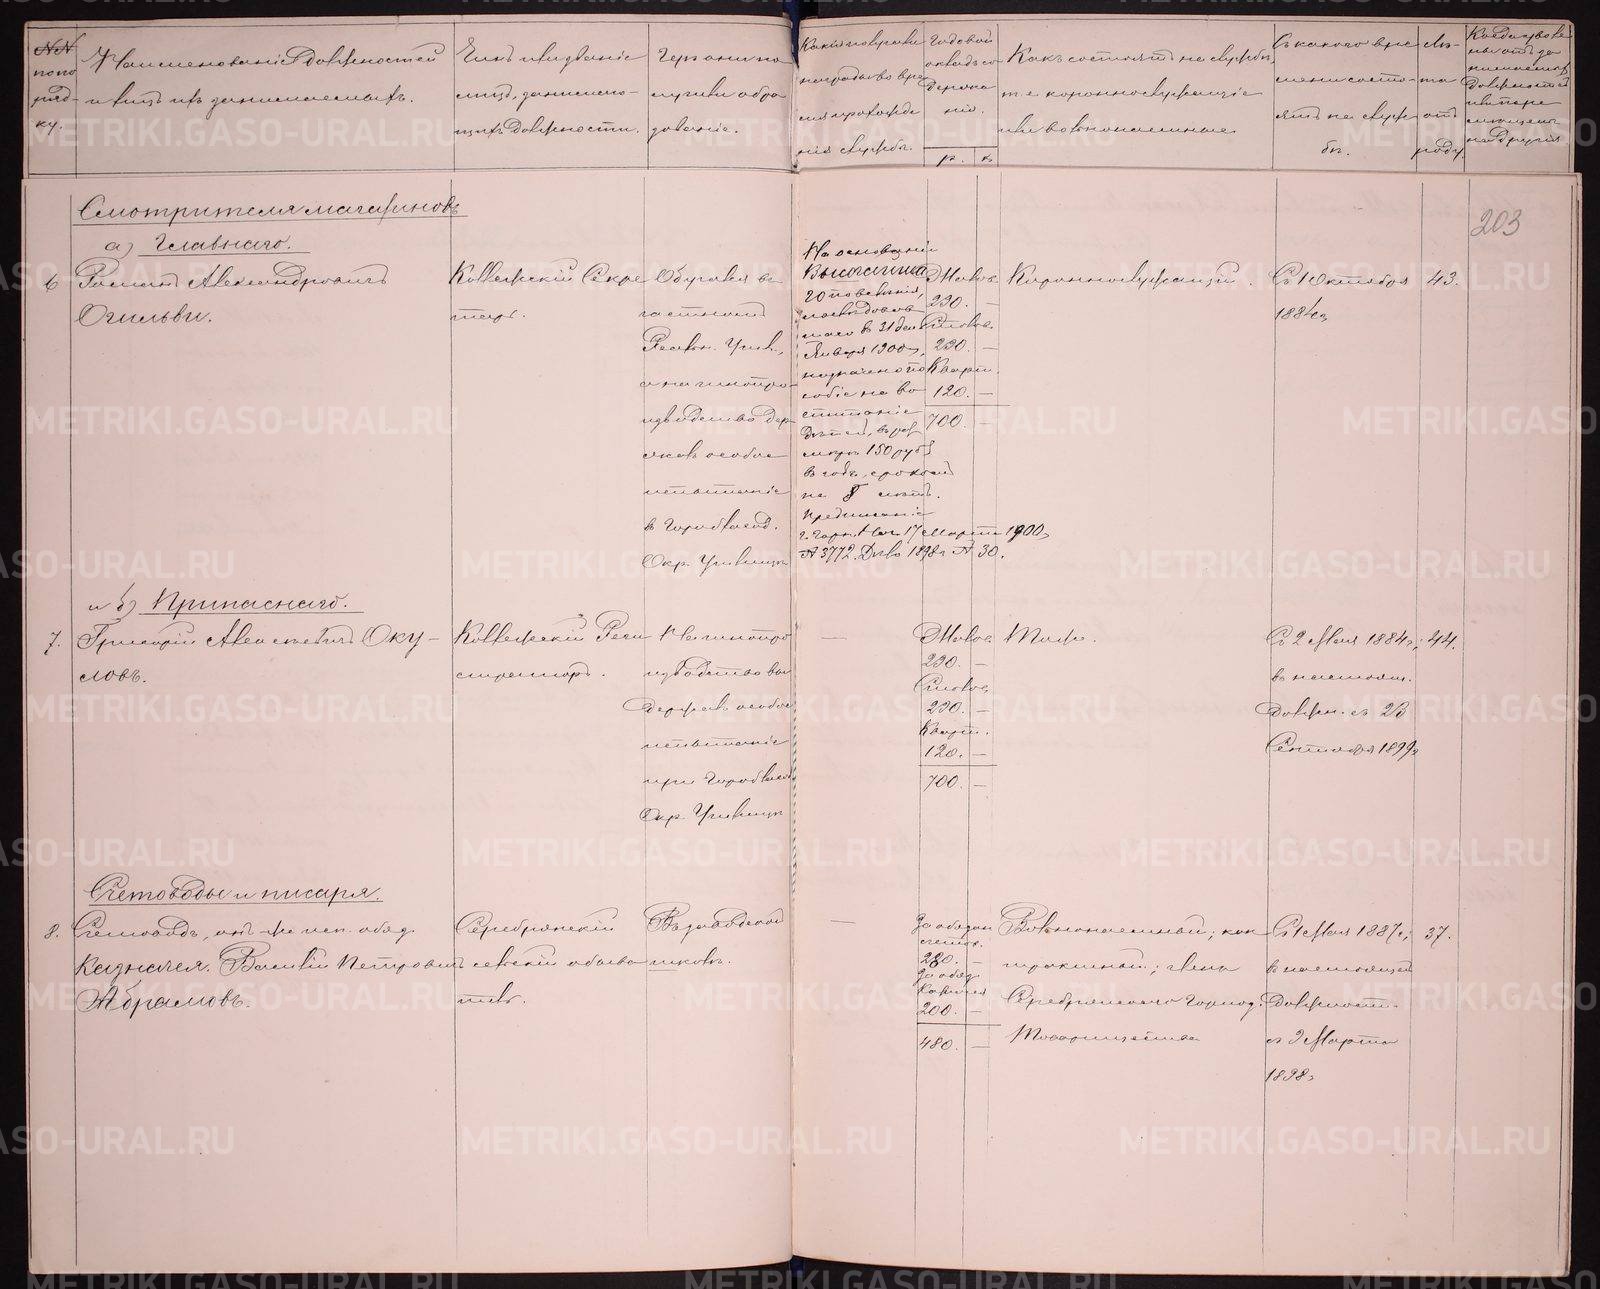 №№
по по
ряд-
ку.
Наименованіе должностей
и лицъ ихъ занимаемыхъ.
Чинъ и званіе
лицъ, занимаю-
щихъ должности.
Гдѣ они по
лучили обра
зованіе.
Какія получили
награды во вре
мя прохожде
нія службы.
Годовой
окладъ со
держа
нія.
р. к.
Какъ состоятъ на службѣ,
т. е. короннослужащіе
или вольнонаемные
Съ какого вре
мени состо-
ятъ на служ
бѣ.
Лѣ-
та
отъ
роду.
203
Смотрителя магазиновъ
а) Главнаго.
6 Романъ Александровичъ
Огильви.
Коллежскій Секре
тарь.
Обучался въ
частномъ
Реальн. Учил.,
а на чинопро-
изводство дер-
жалъ особое
испытаніе
въ Горобла­год.
Окр. Училищѣ
На основаніи
Высочайша
го повелѣнія,
послѣдовав
шаго въ 31 день
Января 1900 г.,
назначено по
собіе на во
спитаніе
дѣтей, въ раз
мѣрѣ 150 руб
въ годъ, срокомъ
на 5 лѣтъ.
Предписаніе
г. Горн. Нач. 17 Марта 1900 г.
№ 3772. Дѣло 1898 г. № 30.
Жалов.
290. —
Столов.
290. —
Кварт.
120. —
700. —
Короннослужащій.
Съ 1 Октября
1884 г.
43.
и б) Припаснаго.
7. Григорій Алексѣевичъ Оку-
ловъ.
Коллежскій Реги
страторъ.
На чинопро
изводство вы
держалъ особое
испытаніе
при Гороблагод
Окр. Училищѣ
—
Жалов.
290. —
Столов.
290. —
Кварт.
120. —
700. —
Тоже.
Съ 2 Мая 1884 г.;
въ настоящ.
должн. съ 23
Сентября 1899 г.
44.
Счетоводы и писаря.
8. Счетоводъ, онъ же исп. обяз.
Казначея. Василій Петровичъ
Абрамовъ.
Серебрянскій
сельскій обыва
тель.
Въ заводской
школѣ.
—
За обязан
счетов.
280. —
За обяз.
Казначея
200. —
480. —
Вольнонаемный; кон
трактный; членъ
Серебрянскаго Горнозав.
Товарищества
Съ 1 Мая 1887 г.;
въ настоящей
должности
съ 2 Марта
1898 г.
37.